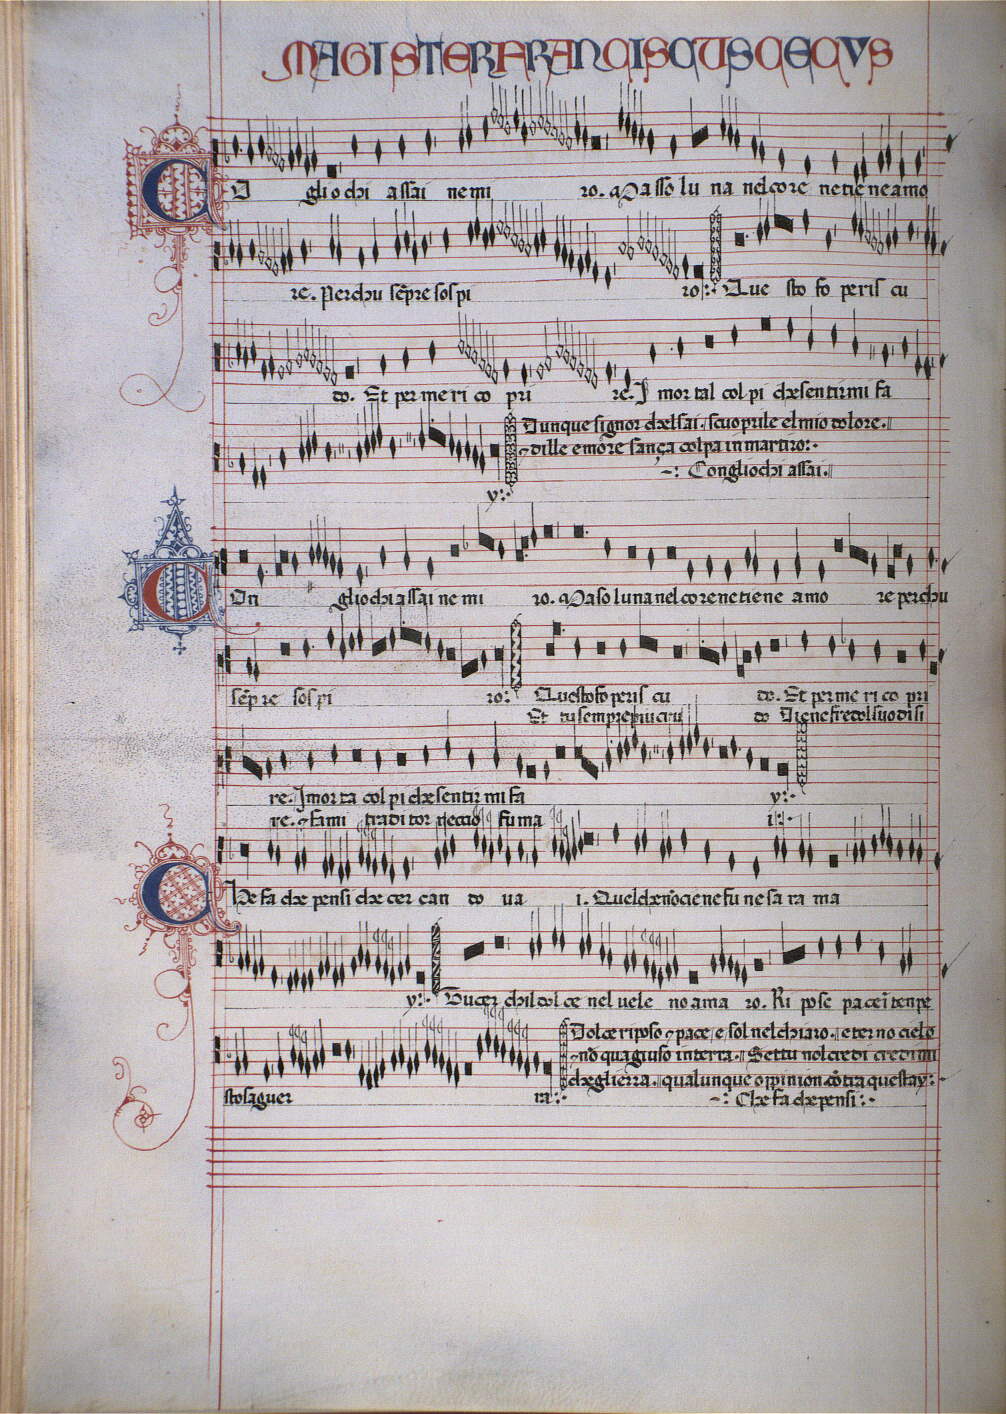 MAGISTER FRANCISCUS CECVS
Co gliochi assai nemi ro. Passo lu na nelcore netieneamo
re. Perchu sẽpre sospi ro: Que sto fo peris cu
do. Et per me ri co pri re. I mortal colpi chesentirmi fa
Dunque signor chelsai. scuoprile elmio dolore.
dille emore sança colpa inmartiro:
y: Congliochi assai.
Con gliochi assai ne mi ro. Paso lunanelcorenetiene amo re perchu
sẽpre sospi ro: Questofoperis cu do. Et per me ri co pri
Et tu semprepiu cru do
re. I morta colpi chesentir mi fa y:
re. fami traditor fuma i:
Che fa che pensi che cer can do ua i. Quelchenõcienefu ne sa ra ma
y: Ducer chil dol ce nel uele no ama ro. Ri pose pace ĩ tenpe
Dolce riposo pace e sol nel chiaro. eterno cielo
nõ quagiuso interra. Settu nolcredi credimi
cheglierra. qualunque oppinion cõtra questay:
stosaguer ra: Che fa chepensi: